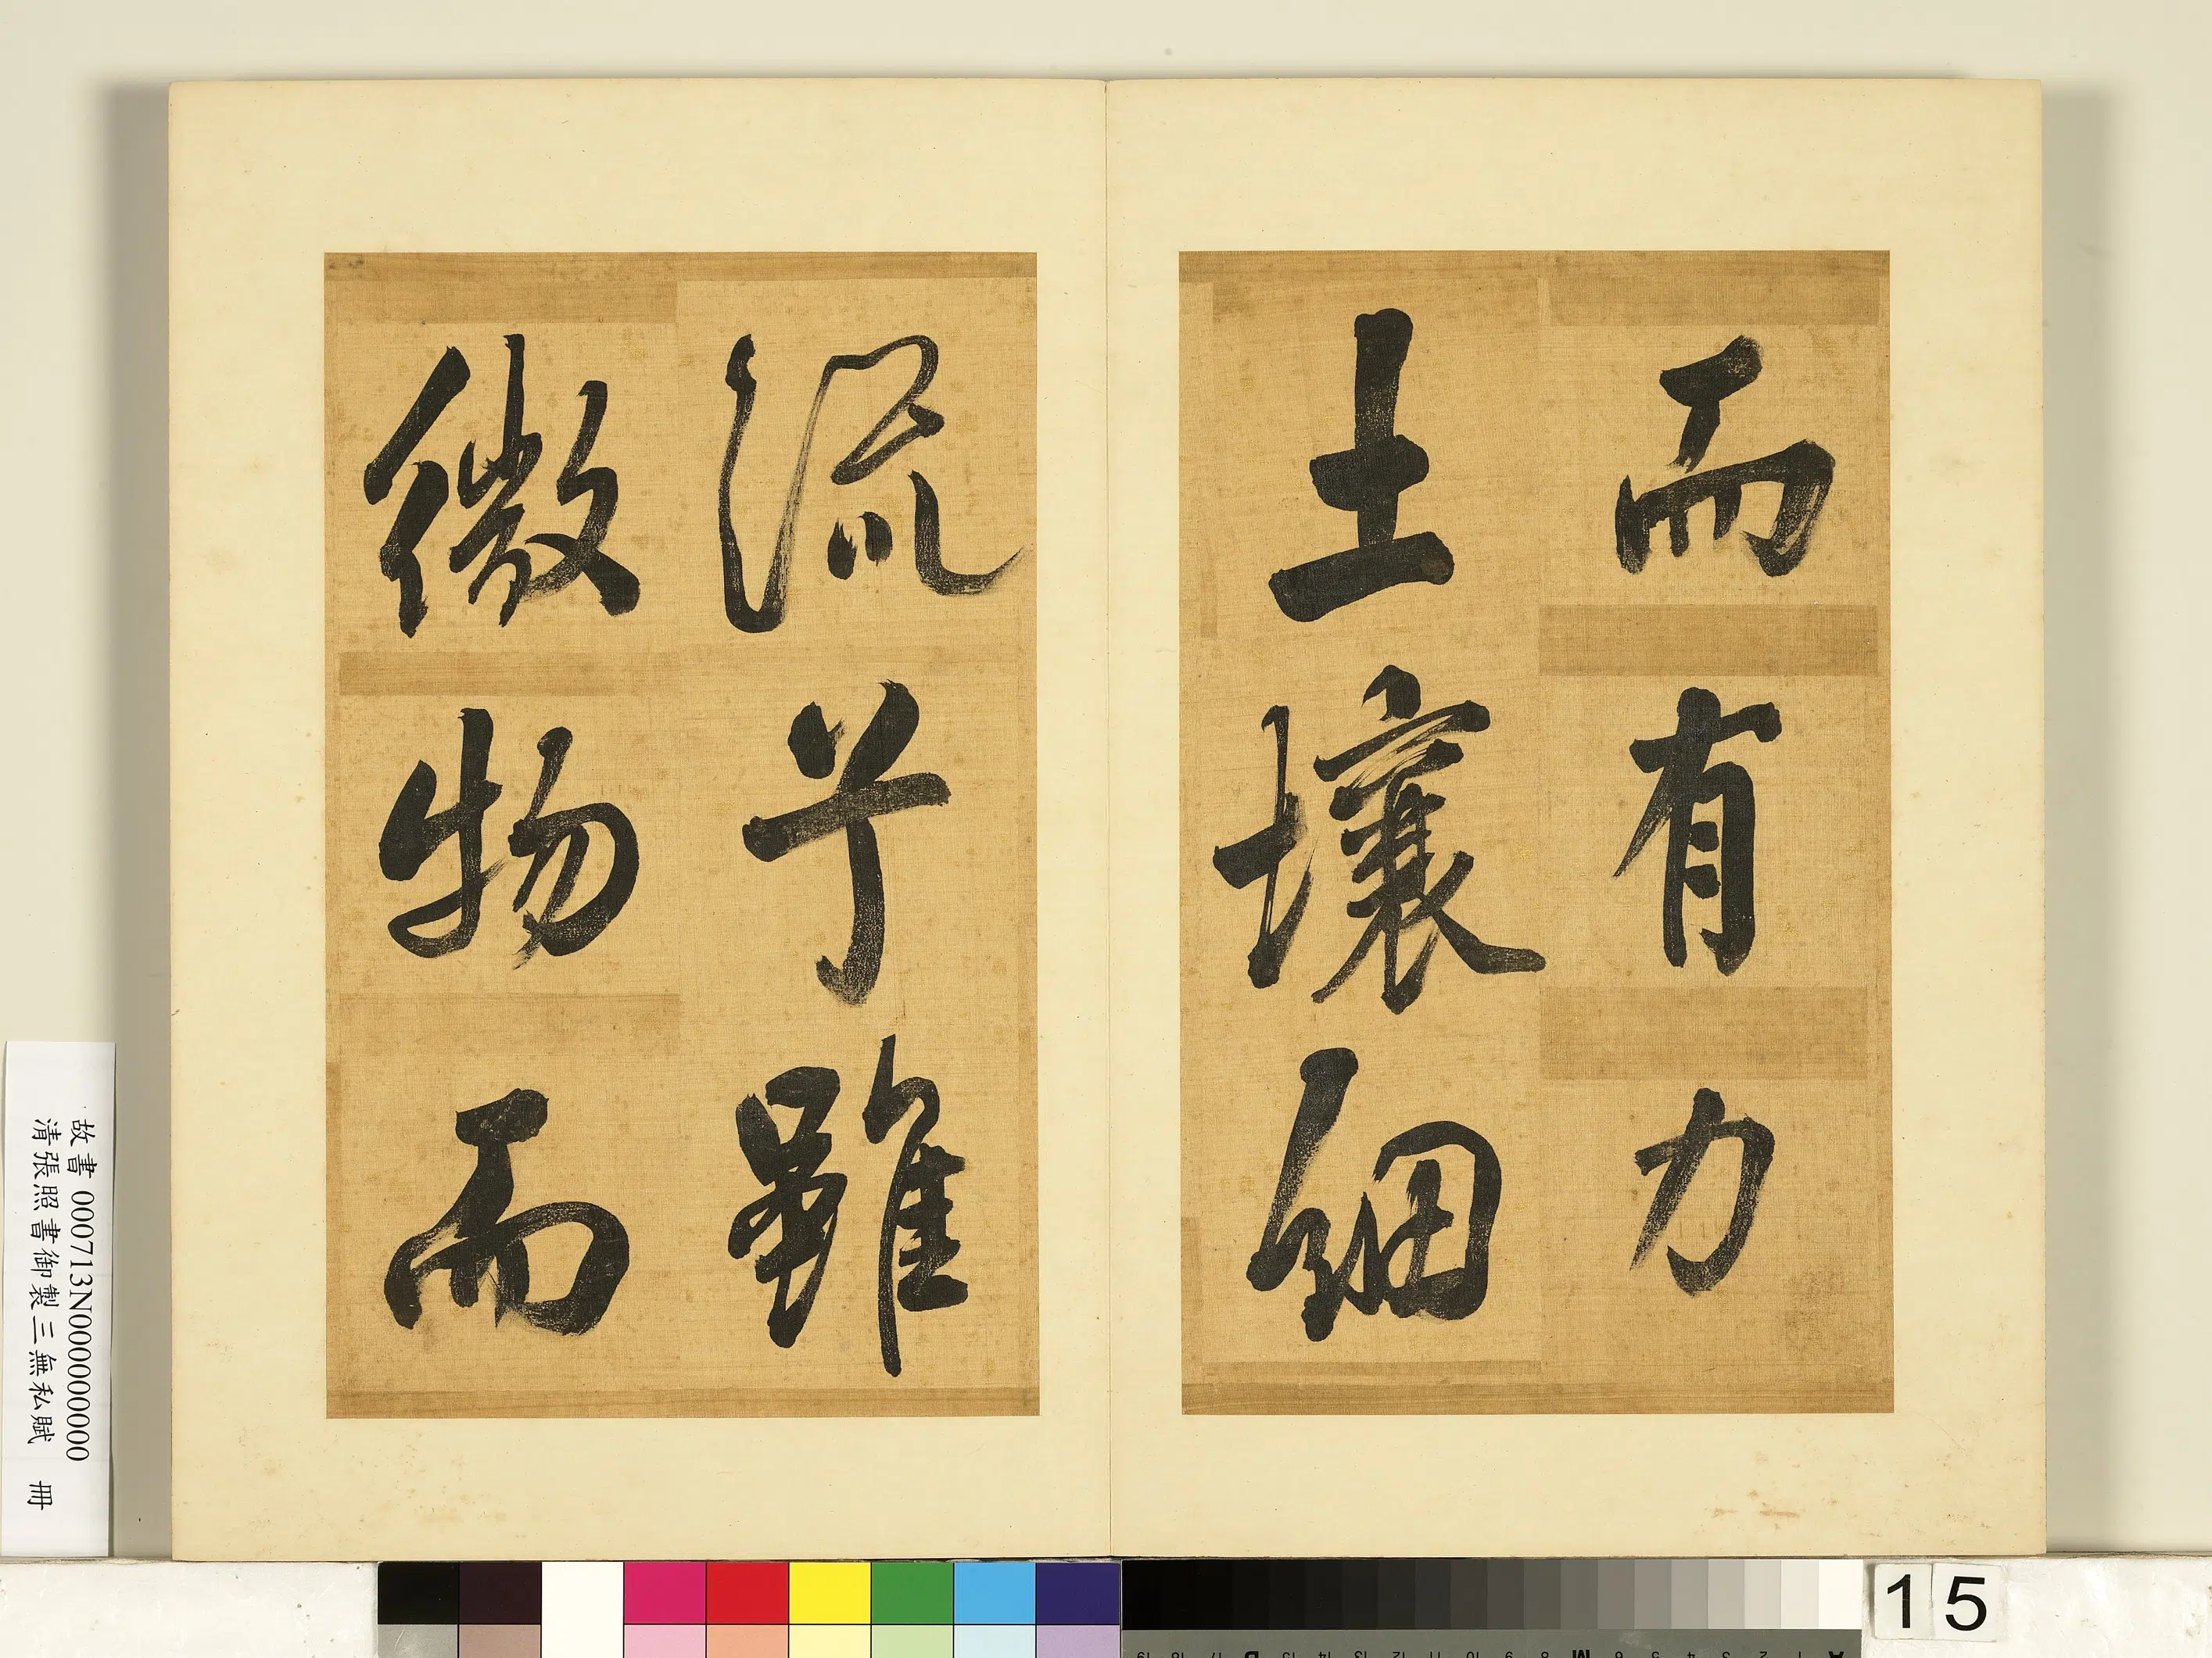 而有力
土壤細
流兮雖
微物而
故書 000713N000000000
清張照書御製三無私賦 冊
15